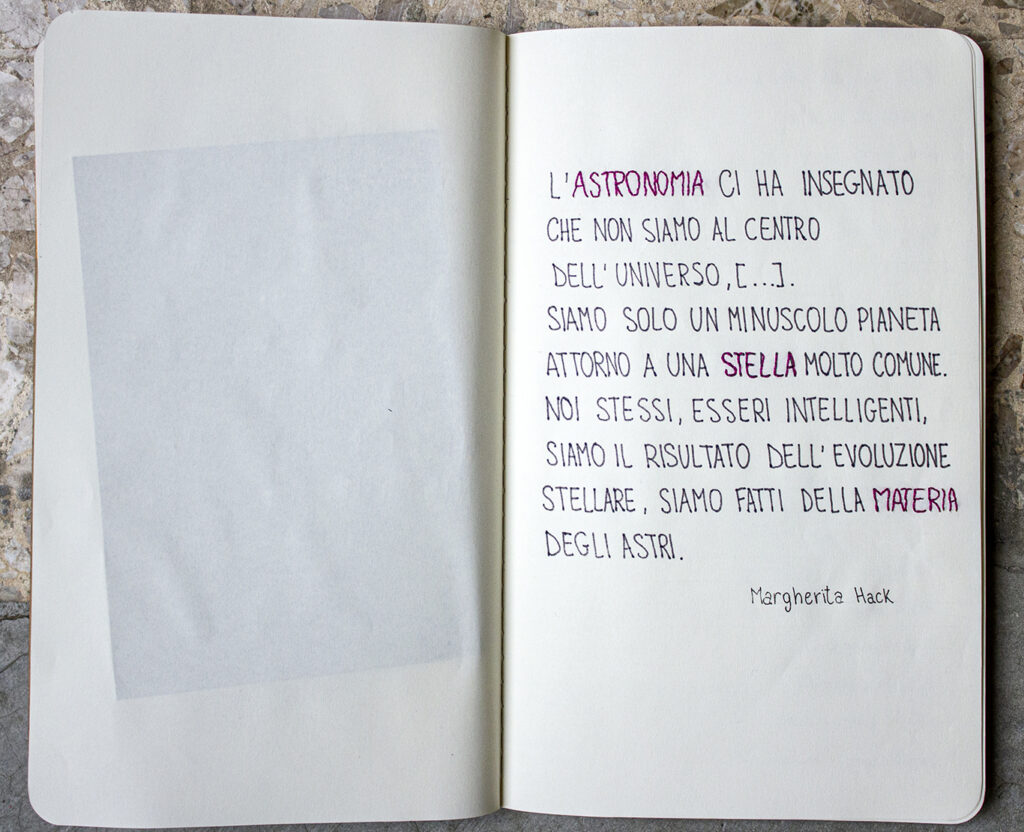 L'ASTRONOMIA CI HA INSEGNATO
CHE NON SIAMO AL CENTRO
DELL'UNIVERSO,[...].
SIAMO SOLO UN MINUSCOLO PIANETA
ATTORNO A UNA STELLA MOLTO COMUNE.
NOI STESSI, ESSERI INTELLIGENTI,
SIAMO IL RISULTATO DELL'EVOLUZIONE
STELLARE, SIAMO FATTI DELLA MATERIA
DEGLI ASTRI.
Margherita Hack